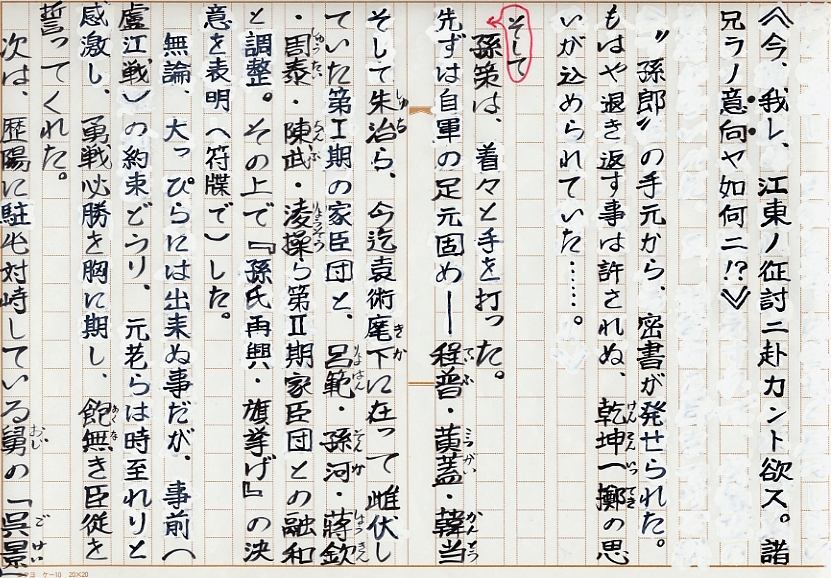 《今、我レ、江東ノ征討ニ赴カント欲ス。諸
兄ラノ意向ヤ如何ニ!?》
〝孫郎〟の手元から、密書が発せられた。
もはや退き返す事は許されぬ、乾坤一擲の思
いが込められていた……。
そして
孫策は、着々と手を打った。
先ずは自軍の足元固め──程普・黄蓋・韓当
そして朱治ら、今迄袁術麾下に在って雌伏し
ていた第Ⅰ期の家臣団と、呂範・孫河・蔣欽
・周泰・陳武・凌操ら第Ⅱ期家臣団との融和
と調整。その上で『孫氏再興・旗挙げ』の決
意を表明(符牒で)した。
無論、大っぴらには出来ぬ事だが、事前(
盧江戦)の約束どうり、元老らは時至れりと
感激し、勇戦必勝を胸に期し、飽無き臣従を
誓ってくれた。
次は、歴陽に駐屯対峙している舅の「呉景
ケー10 20×20